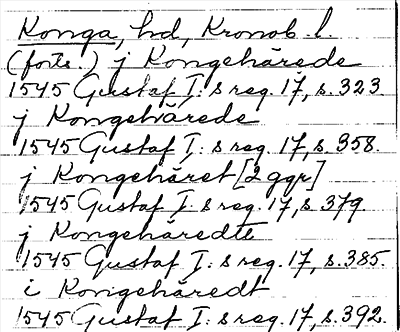 Konga, hd, Kronob. l.
(forts.) j Kongehärede
1545 Gustaf I:s reg. 17, s. 323.
j Kongehärede
1545 Gustaf I:s reg. 17, s. 358.
j Kongehäret [2 ggr]
1545 Gustaf I:s reg. 17, s 379.
j Kongehäredtt
1545 Gustaf I:s reg. 17, s. 385.
i Kongehäredt
1545 Gustaf I:s reg. 17, s. 392.